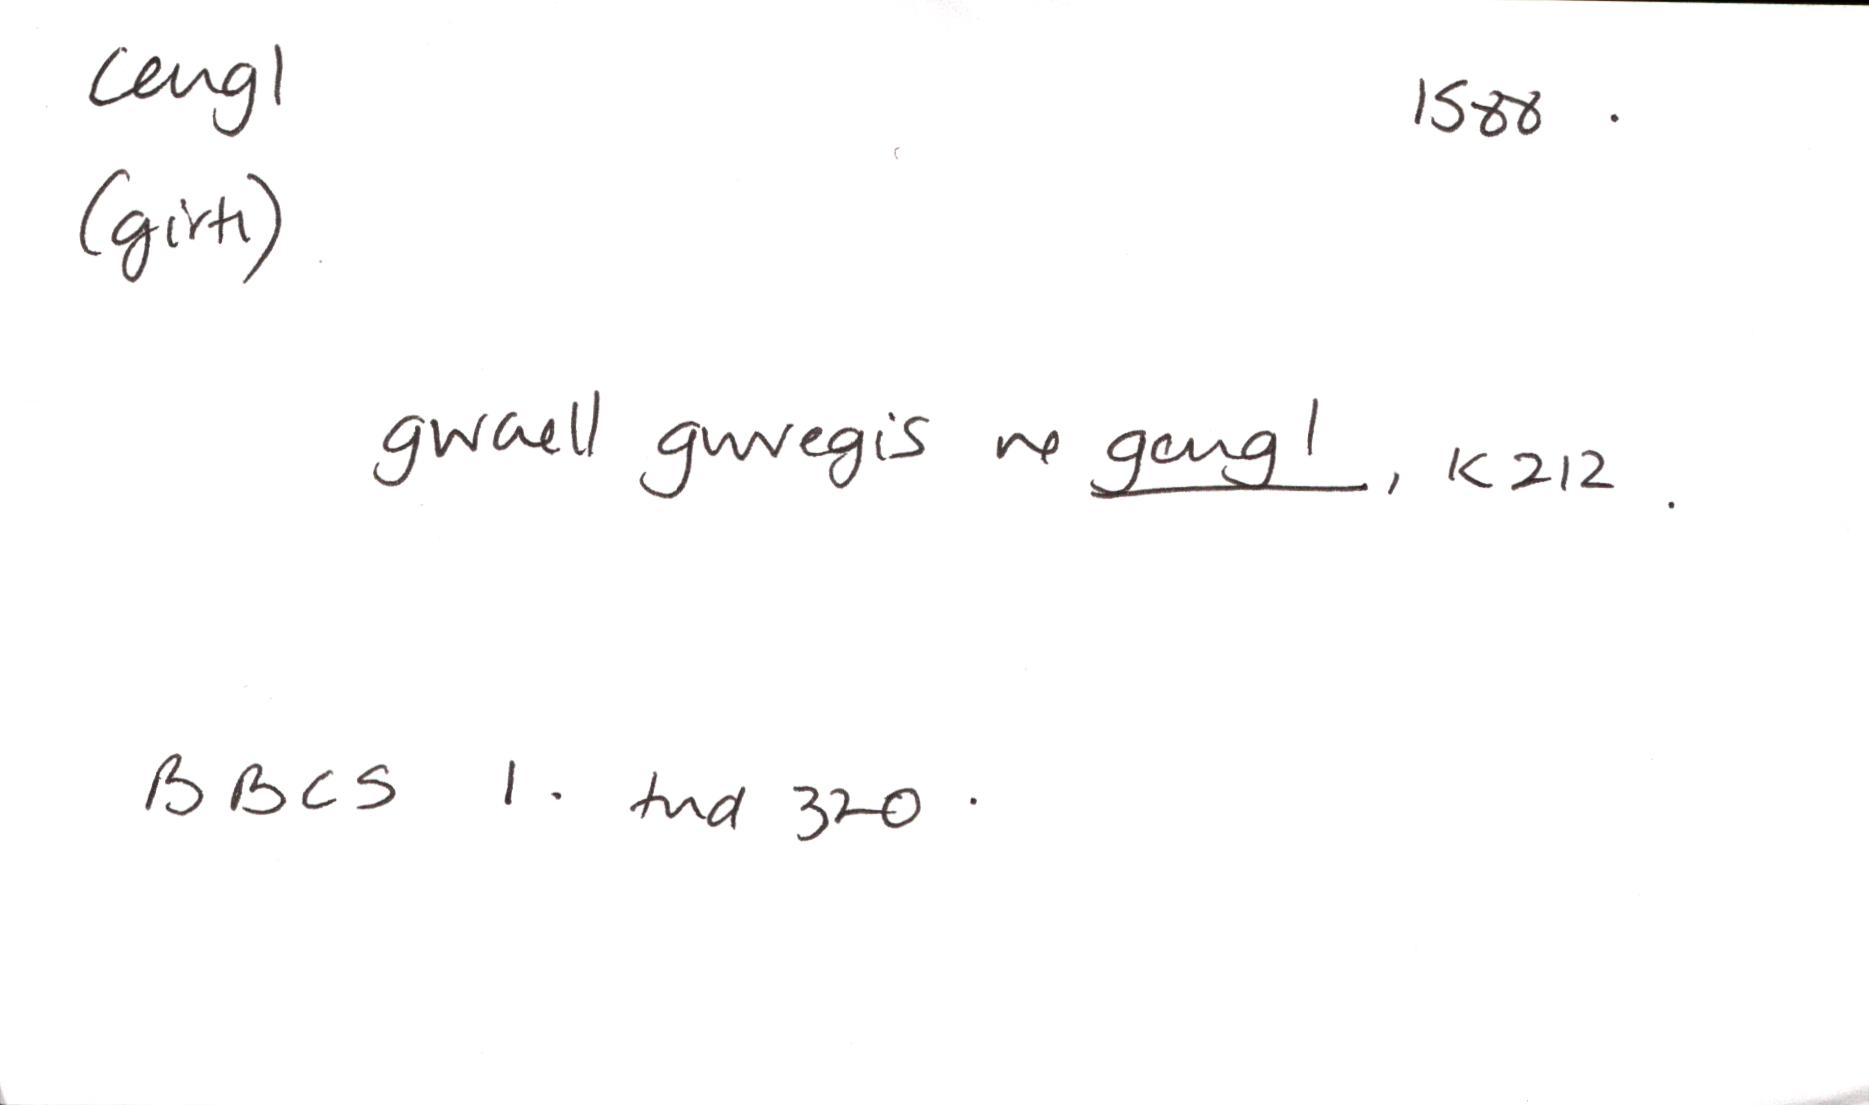 cengl 1588.
(girth)
gwaell gwregis ne gengl, K212.
BBCS 1. tud 320.